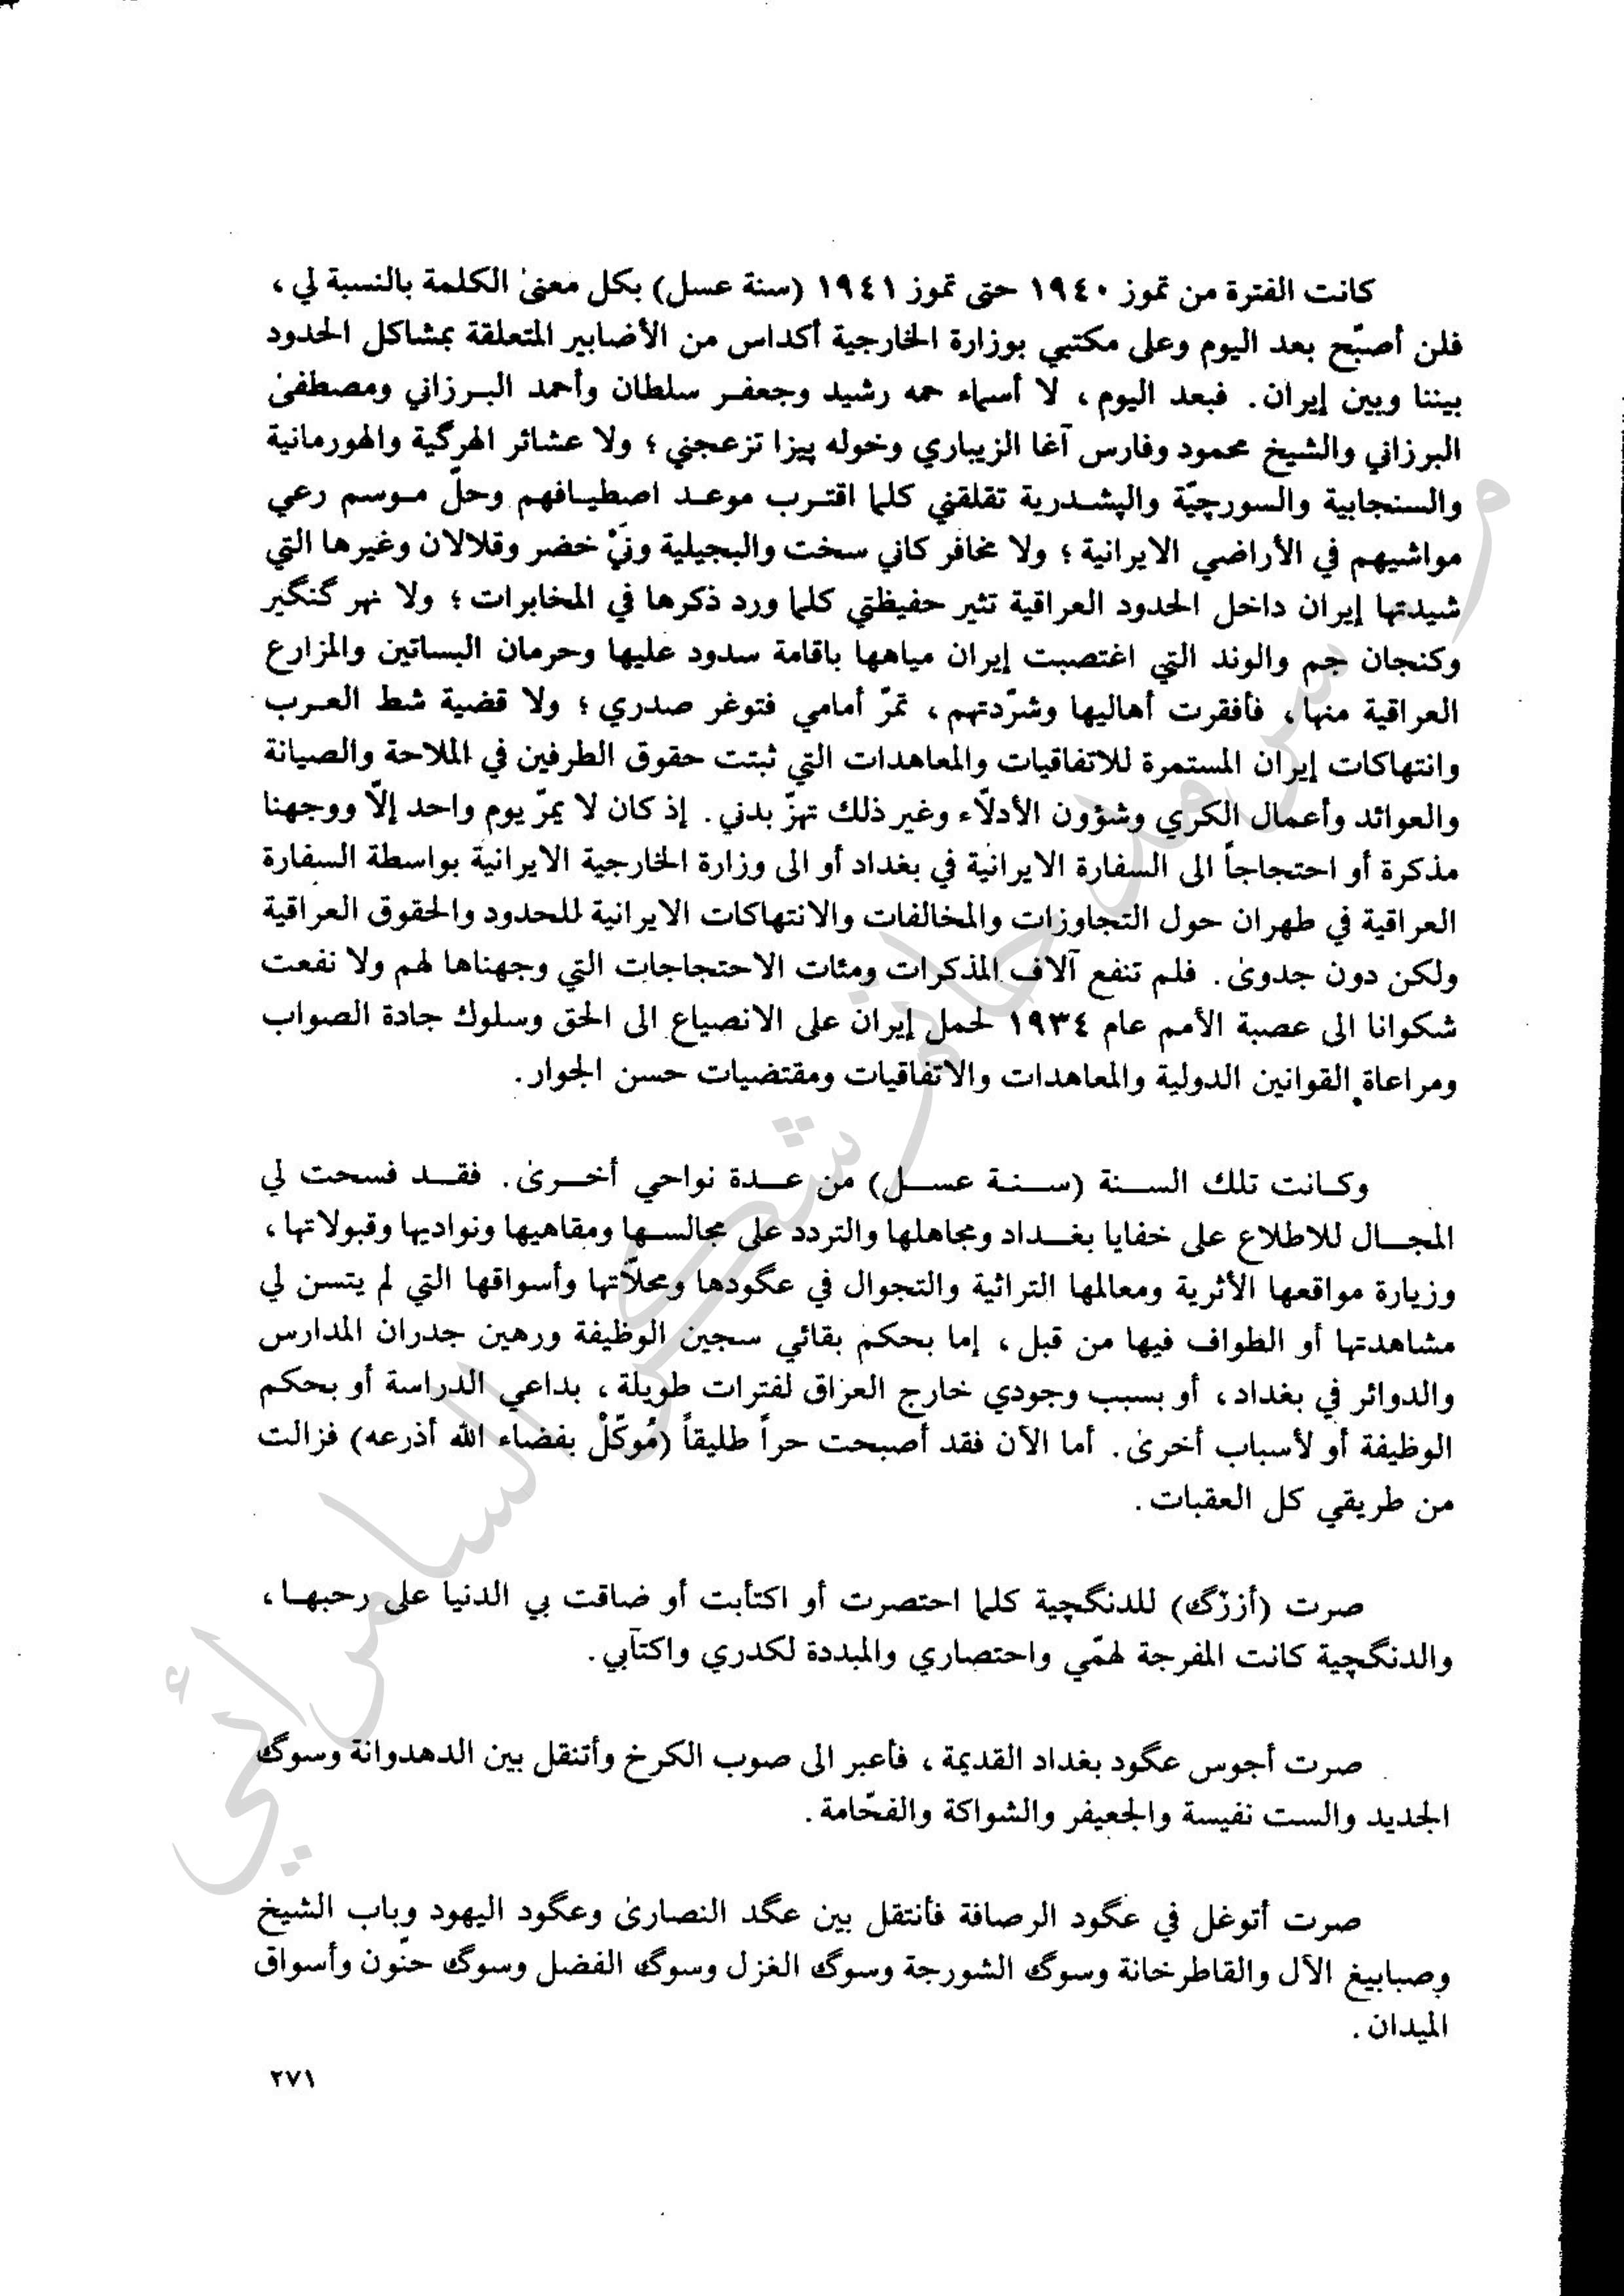 كانت الفترة من تموز ١٩٤٠ حتى تموز ١٩٤١ (سنة عسل) بكل معنىٰ الكلمة بالنسبة لي ،
فلن أصبّح بعد اليوم وعلى مكتبي بوزارة الخارجية أكداس من الأضابير المتعلقة بمشاكل الحدود
بيننا وبين إيران . فبعد اليوم ، لا أسماء حمه رشيد وجعفـر سلطان وأحمد البـرزاني ومصطفىٰ
البرزاني والشيخ محمود وفارس آغا الزيباري وخوله پيزا تزعجني ؛ ولا عشائر الهرگية والهورمانية
والسنجابية والسورچيّة والپشـدرية تقلقني كلما اقتـرب موعـد اصطيـافهم وحلّ مـوسم رعي
مواشيهم في الأراضي الايرانية ؛ ولا مخافر كاني سخت والبجيلية ونَيْ خضر وقلالان وغيرها التي
شيدتها إيران داخل الحدود العراقية تثير حفيظتي كلما ورد ذكرها في المخابرات ؛ ولا نهر گنگير
وكنجان جم والوند التي اغتصبت إيران مياهها باقامة سدود عليها وحرمان البساتين والمزارع
العراقية منها ، فأفقرت أهاليها وشرّدتهم ، تمرّ أمامي فتوغر صدري ؛ ولا قضية شط العـرب
وانتهاكات إيران المستمرة للاتفاقيات والمعاهدات التي ثبتت حقوق الطرفين في الملاحة والصيانة
والعوائد وأعمال الكري وشؤون الأدلّاء وغير ذلك تهزّ بدني . إذ كان لا يمرّ يوم واحد إلّا ووجهنا
مذكرة أو احتجاجاً الى السفارة الايرانية في بغداد أو الى وزارة الخارجية الايرانية بواسطة السفارة
العراقية في طهران حول التجاوزات والمخالفات والانتهاكات الايرانية للحدود والحقوق العراقية
ولكن دون جدوىٰ . فلم تنفع آلاف المذكرات ومئات الاحتجاجات التي وجهناها لهم ولا نفعت
شكوانا الى عصبة الأمم عام ١٩٣٤ لحمل إيران على الانصياع الى الحق وسلوك جادة الصواب
ومراعاة القوانين الدولية والمعاهدات والاتفاقيات ومقتضيات حسن الجوار .
وكـانت تلك السـنة (سـنـة عسـل) من عـدة نواحي أخـرىٰ . فقـد فسحت لي
المجـال للاطلاع على خفايا بغـداد ومجاهلها والتردد على مجالسـها ومقاهيها ونواديها وقبولاتها ،
وزيارة مواقعها الأثرية ومعالمها التراثية والتجوال في عگودها ومحلّاتها وأسواقها التي لم يتسن لي
مشاهدتها أو الطواف فيها من قبل ، إما بحكم بقائي سجين الوظيفة ورهين جدران المدارس
والدوائر في بغداد ، أو بسبب وجودي خارج العراق لفترات طويلة ، بداعي الدراسة أو بحكم
الوظيفة أو لأسباب أخرىٰ . أما الآن فقد أصبحت حراً طليقاً (مُوكّلْ بفضاء الله أذرعه) فزالت
من طريقي كل العقبات .
صرت (أزرّگ) للدنگچية كلما احتصرت أو اكتأبت أو ضاقت بي الدنيا على رحبهـا ،
والدنگچية كانت المفرجة لهمّي واحتصاري والمبددة لكدري واكتآبي .
صرت أجوس عگود بغداد القديمة ، فأعبر الى صوب الكرخ وأتنقل بين الدهدوانة وسوگ
الجديد والست نفيسة والجعيفر والشواكة والفحّامة .
صرت أتوغل في عگود الرصافة فأنتقل بين عگد النصارىٰ وعگود اليهود وباب الشيخ
وصبابيغ الآل والقاطرخانة وسوگ الشورجة وسوگ الغزل وسوگ الفضل وسوگ حنّون وأسواق
الميدان .
٢٧١
سرمد حاتم شكر السامرائي